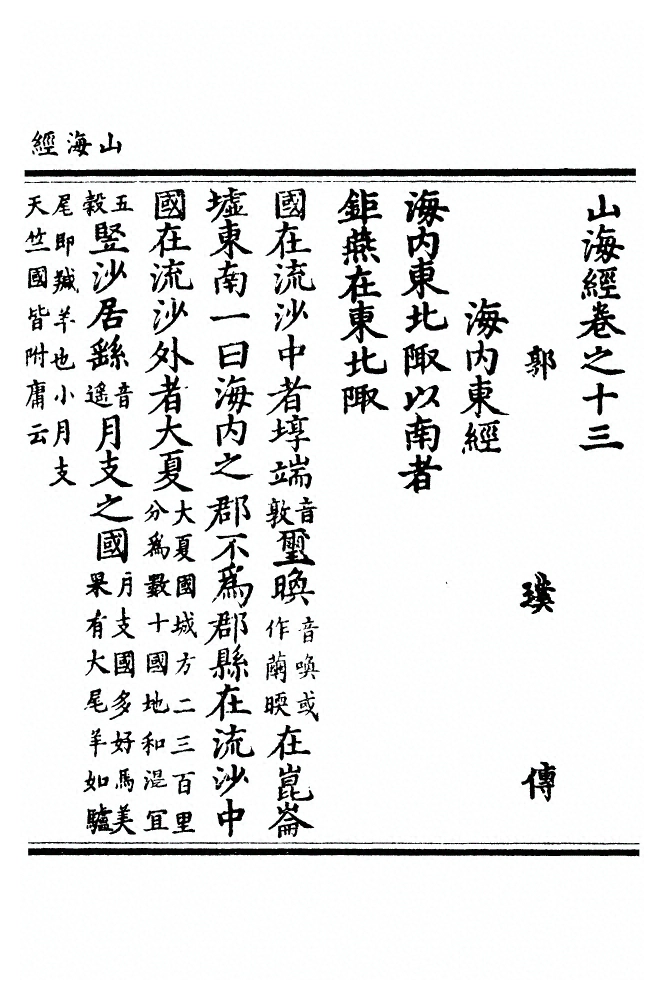 山海經
山海經卷之十三
郭璞傳
海内東經
海内東北陬以南者
鉅燕在東北陬
國在流沙中者埻端音敦璽㬇音喚或作繭㬇在崑崙
墟東南一曰海内之郡不爲郡縣在流沙中
國在流沙外者大夏大夏國城方二三百里分爲數十國地和温宜
五穀豎沙居繇音遙月支之國月支國多好馬美果有大尾羊如驢
尾即羬羊也小月支天竺國皆附庸云